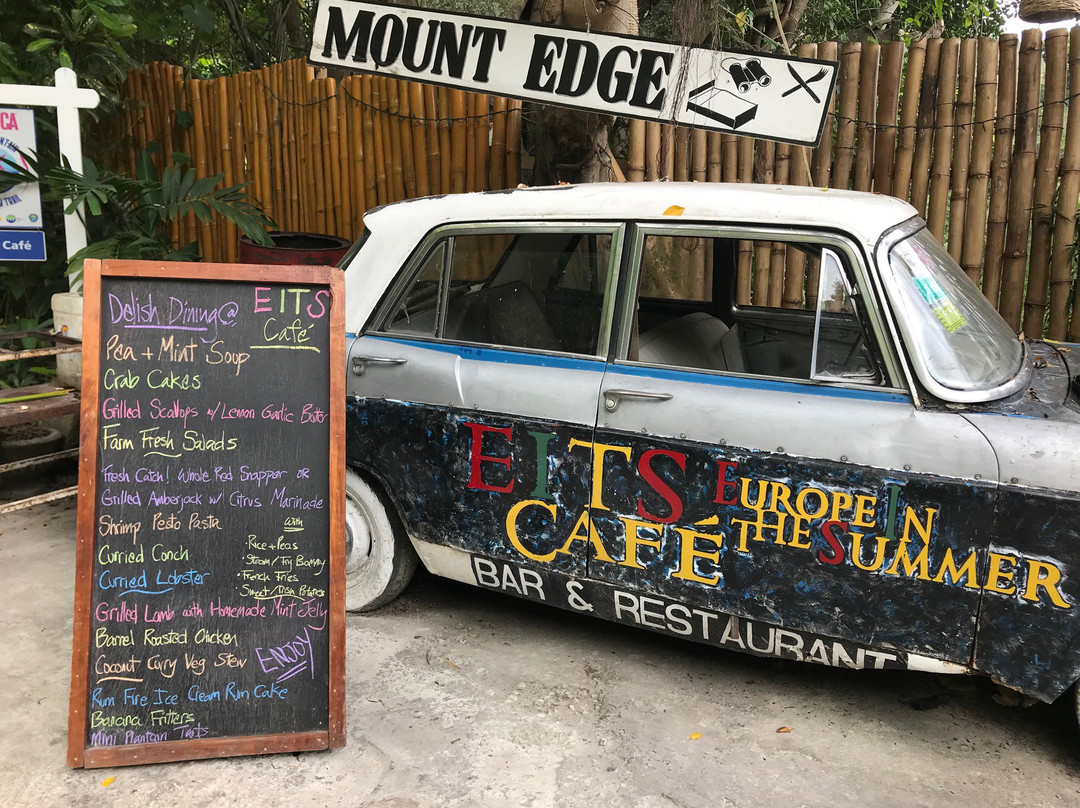 MOUNT EDGE
CA
TRAIL
Café
Delish Dining @ EITS
Café
Pea + Mint Soup
Crab Cakes
Grilled Scallops w/ Lemon Garlic Butter
Farm Fresh Salads
Fresh Catch! Whole Red Snapper OR
Grilled Amberjack w/ Citrus Marinade
Shrimp Pesto Pasta
Curried Conch
Curried Lobster
with
• Rice + Peas
• Steam/Fry Bammy
• French Fries
• Sweet/Irish Potatoes
Grilled Lamb with Homemade Mint Jelly
Barrel Roasted Chicken
Coconut Curry Veg Stew
ENJOY
Rum Fire Ice Cream Rum Cake
Banana Fritters
Mini Plantain Tarts
EITS
CAFÉ
EUROPE IN
THE SUMMER
BAR & RESTAURANT